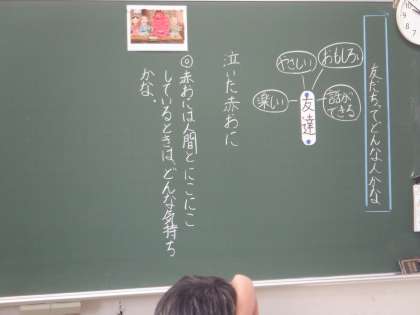 友だちってどんな人かな
おもしろい
やさしい
話が
できる
楽しい
友達
泣いた赤おに
◎赤おには人間とにこにこ
しているときは、どんな気持ち
かな。